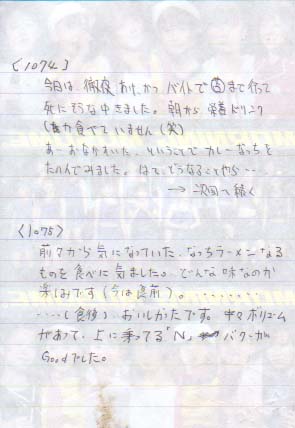 〈1074〉
今日は、徹夜あけ、かつバイトで まで行って
死にそうな中きました。朝から栄養ドリンク
しか食べていません(笑)
あーおなかすいた、ということでカレーなっちを
たのんでみました。はて、どうなることやら…
→ 次回へ続く
〈1075〉
前々から気になっていた、なっちラーメンなる
ものを食べに気ました。どんな味なのか
楽しみです(今は食前)。………
……(食後) おいしかったです。中々ボリューム
があって、上に乗ってる「N」 バターが
Goodでした。